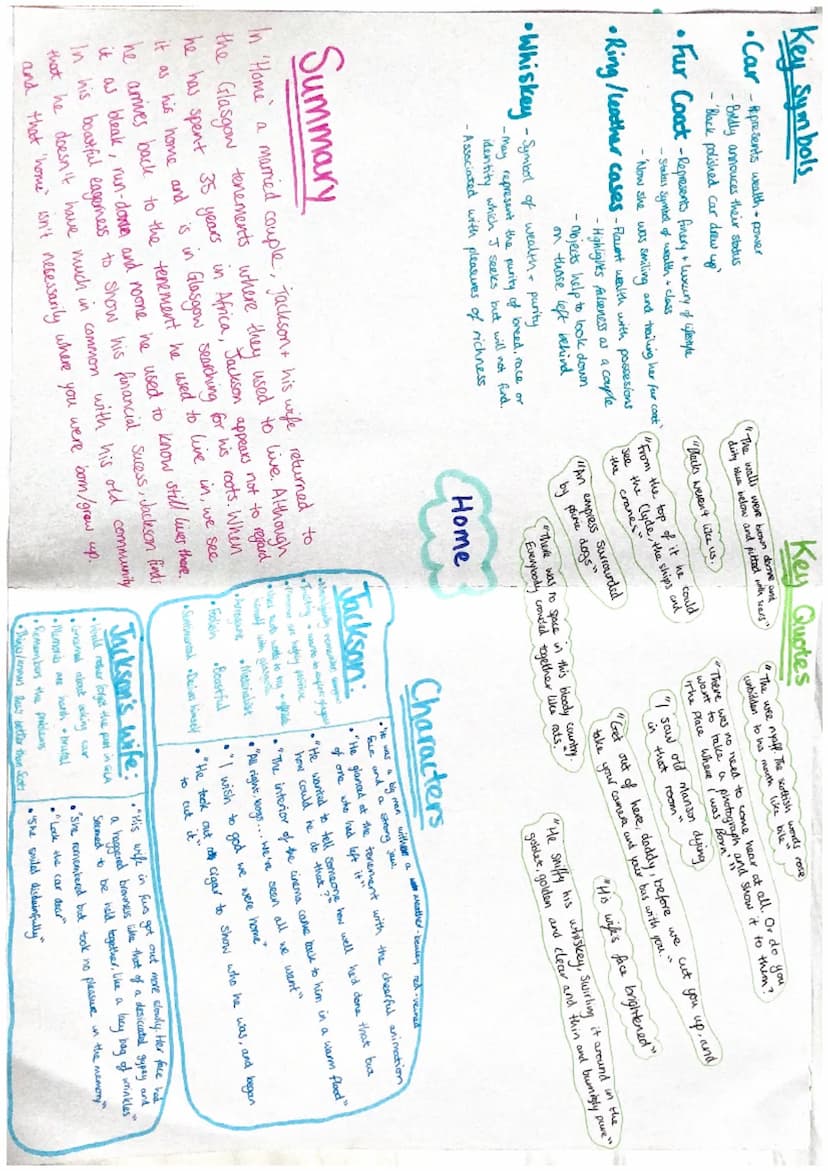 Key Symbols
• Car - Represents wealth + power
- Boldly annouces their status
- 'Black polished car drew up'
• Fur Coat - Represents finery + luxury of lifestyle
- Status symbol of wealth + class
- 'Now she was smiling and trailing her fur coat'
• Ring/leather cases - Flaunt wealth with possesions
- Highlights falseness as a couple
- Objects help to look down
on those left behind
• Whiskey - Symbol of wealth + purity
- May represent the purity of land, race or
identity which J seeks but will not find.
- Associated with pleasures of richness
Key Quotes
"The walls were brown above and
dirty blue below and pitted with scars"
"Blacks weren't like us.
"From the top of it he could
see the Clyde, the ships and
the cranes"
"An empress surrounded
by prairie dogs"
"There was no space in this bloody country.
Everybody crowded together like rats.
"The wee nyaff. The scottish words rose
unbidden to his mouth like bile"
"There was no need to come hear at all. Or do you
want to take a photograph and show it to them?
'The place where I was Born'."
"I saw old manson dying
in that room"
"Get out of here, daddy, before we cut you up, and
take your camera and your bus with you."
"His wife's face brightened"
"He sniffy his whiskey, swirling it around in the
goblet, golden and clear and thin and burningly pure"
Home
Summary
In 'Home' a married couple, jackson + his wife, returned to
the Glasgow tenements where they used to live. Although
he has spent 35 years in Africa, Jackson appears not to regard
it as his home and is in Glasgow searching for his roots. When
he arrives back to the tenement he used to live in, we see
it as bleak, run-down and noone he used to know still lives there.
In his boastful eagerness to show his financial suess, Jackson finds
that he doesn't have much in common with his old community
and that 'home' isn't necessarily where you were born/grew up.
Characters
Jackson:
• Materialist
• Foolish • Boastful
• Sentimental • Deludes himself
• "he was a big man with a weather-beaten red-veined
face and a strong jaw"
• "He glanced at the tenement with the cheerful animation
of one who had left it"
• "He wanted to tell someone how well he'd done that but
how could he do that?"
• "The interior of the cinema came back to him in a warm flood"
• "All right, kings... we've seen all we want"
• "I wish to god we were home"
• "He took out cigar to show who he was, and began
to cut it"
Jackson's wife:
• Would rather forget the past in
• Concerned about asking car
• Memories are harsh + brutal
• Remembers the problems
• "His wife in furs got out more slowly. Her face had
a haggered brownness like that of a desicated gypsy and
seemed to be held together, like a lacy bag of wrinkles"
• "She remembered but took no pleasure in the memory"
• "Lock the car door"
• "She smiled disdainfully"